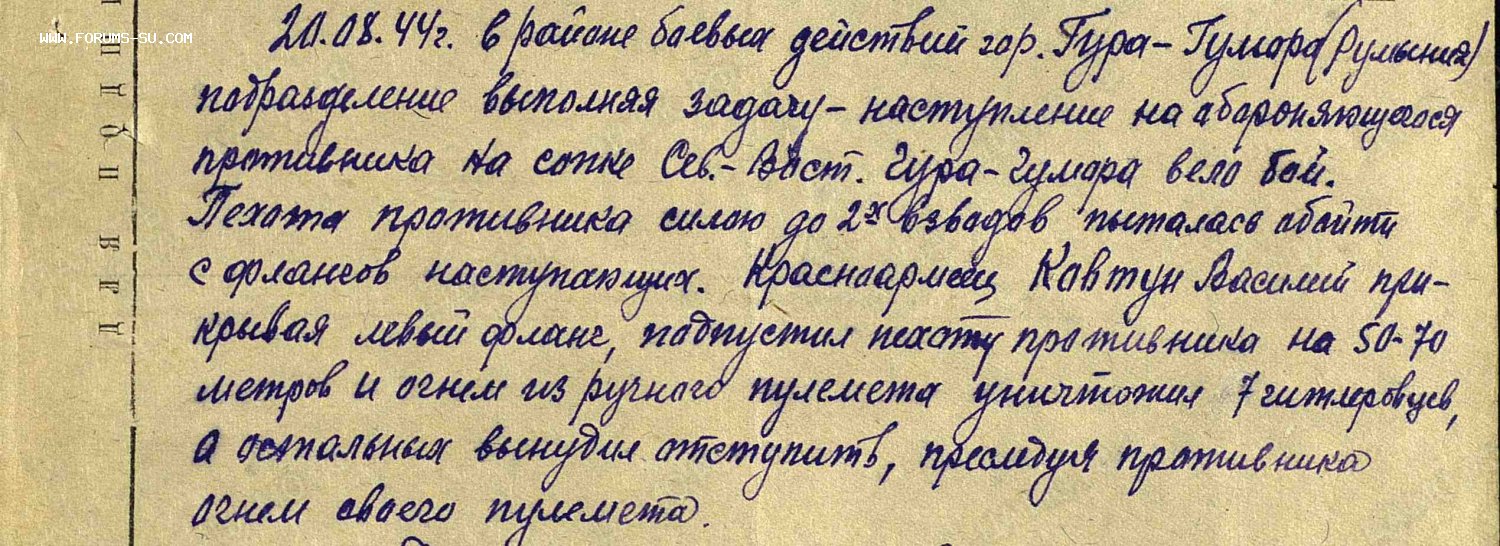 WWW.FORUMS-SU.COM
20.08.44г. в районе боевых действий гор. Гура-Гумора (Румыния)
подразделение выполняя задачу - наступление на обороняющегося
противника на сопке Сев.-Вост. Гура-Гумора вело бой.
Пехота противника силою до 2х взводов пыталась обойти
с флангов наступающих. Красноармеец Кавтун Василий при-
крывая левый фланг, подпустил пехоту противника на 50-70
метров и огнем из ручного пулемета уничтожил 7 гитлеровцев,
а остальных вынудил отступить, преследуя противника
огнем своего пулемета.
ДЛЯ ПОДПИ